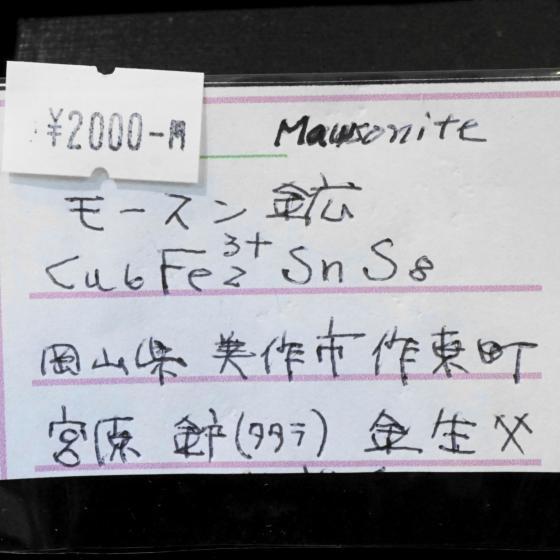 ¥2000-円
Mawsonite
モースン鉱
Cu6Fe2 3+ SnS8
岡山県 美作市 作東町
宮原 鈩(タタラ) 金生